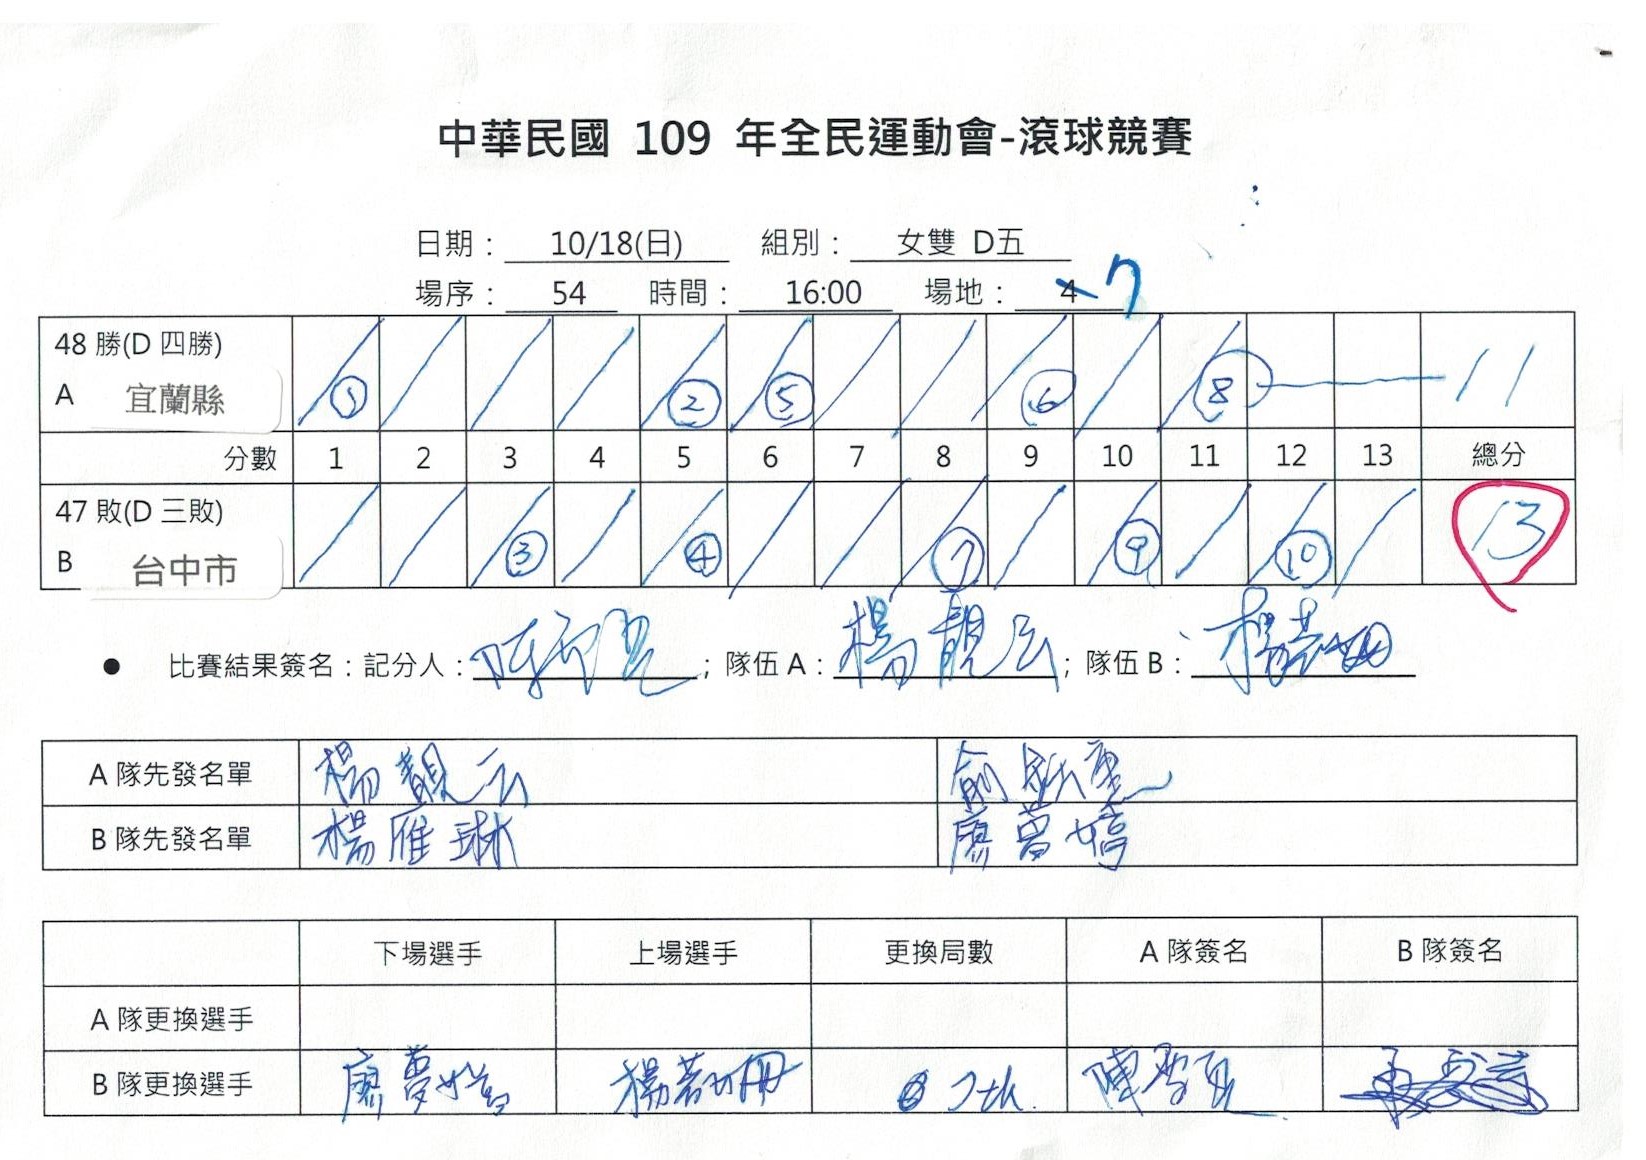 中華民國 109 年全民運動會-滾球競賽
日期： 10/18(日) 組別： 女雙 D五
場序： 54 時間： 16:00 場地： 4 7
48 勝(D 四勝)
A 宜蘭縣 ① ② ⑤ ⑥ ⑧ 11
分數 1 2 3 4 5 6 7 8 9 10 11 12 13 總分
47 敗(D 三敗)
B 台中市 ③ ④ ⑦ ⑨ ⑩ 13
● 比賽結果簽名：記分人： ；隊伍 A：楊靚云；隊伍 B：
A 隊先發名單 楊靚云
B 隊先發名單 楊雁琳 廖夢婷
下場選手 上場選手 更換局數 A 隊簽名 B 隊簽名
A 隊更換選手
B 隊更換選手 廖夢婷